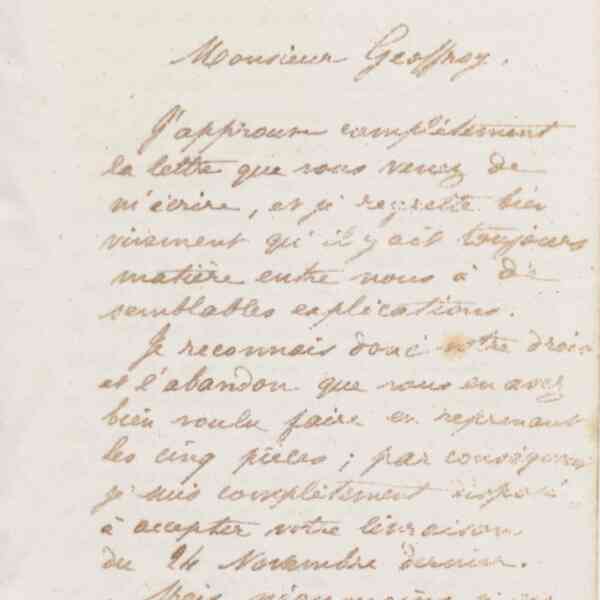 Monsieur Geoffroy.
J'approuve complètement
la lettre que vous venez de
m'écrire, et je regrette bien
vivement qu'il y ait toujours
matière entre nous à de
semblables explications.
Je reconnais donc votre droit
et l'abandon que vous en avez
bien voulu faire en reprenant
les cinq pièces ; par conséquent
je suis complètement disposé
à accepter votre livraison
du 24 Novembre dernier.
Mais néanmoins